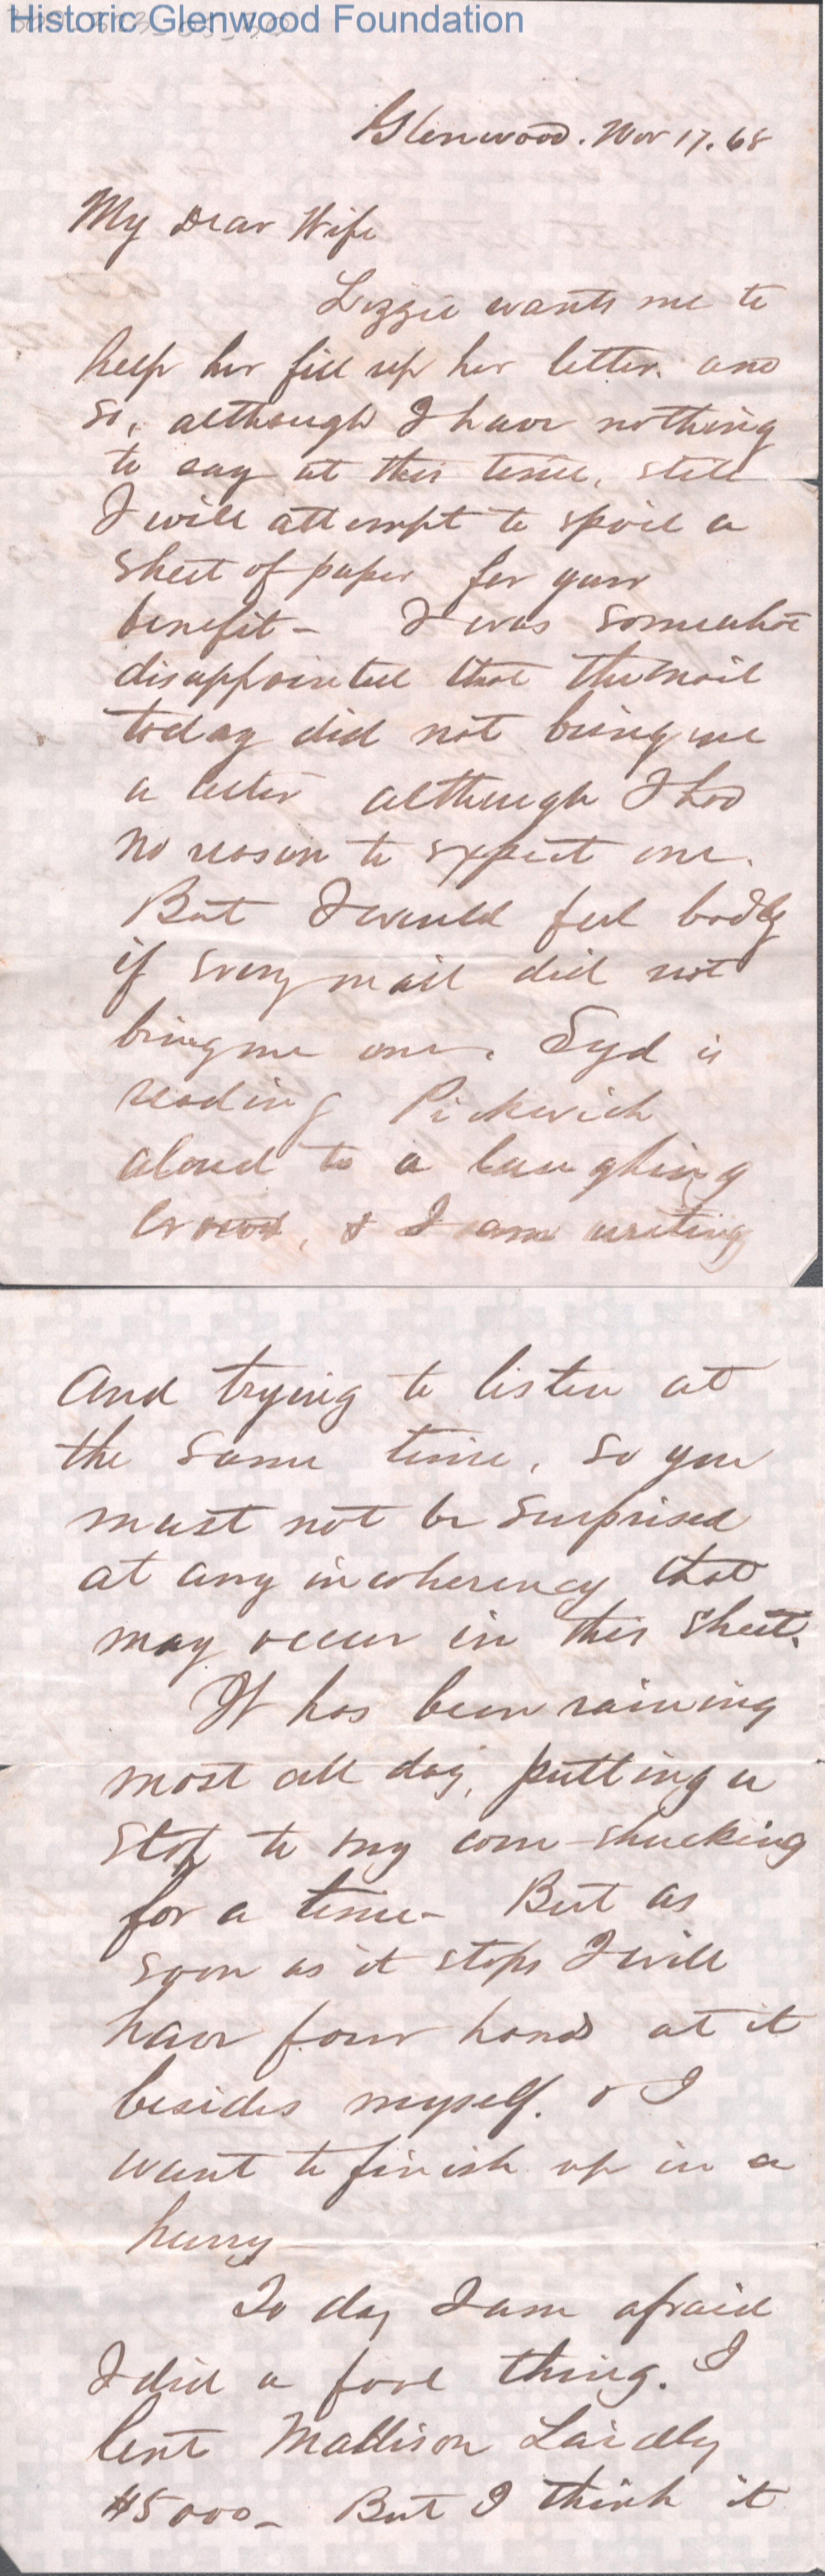 Historic Glenwood Foundation
Glenwood. Nov 17. 68
My Dear Wife
Lizzie wants me to
help her fill up her letter. and
so, although I have nothing
to say at this time, still
I will attempt to spoil a
sheet of paper for your
benefit - I was somewhat
disappointed that the mail
today did not bring me
a letter although I had
no reason to expect one.
But I would feel badly
if every mail did not
bring me one. Syd is
reading Pickwick
aloud to a laughing
crowd, & I am writing
And trying to listen at
the same time, so you
must not be surprised
at any incoherency that
may occur in this sheet.
It has been raining
most all day, putting a
stop to my corn-shucking
for a time - But as
soon as it stops I will
have four hands at it
besides myself. & I
want to finish up in a
hurry -
To day I am afraid
I did a fool thing. I
lent Maddison Laidly
$5000 - But I think it